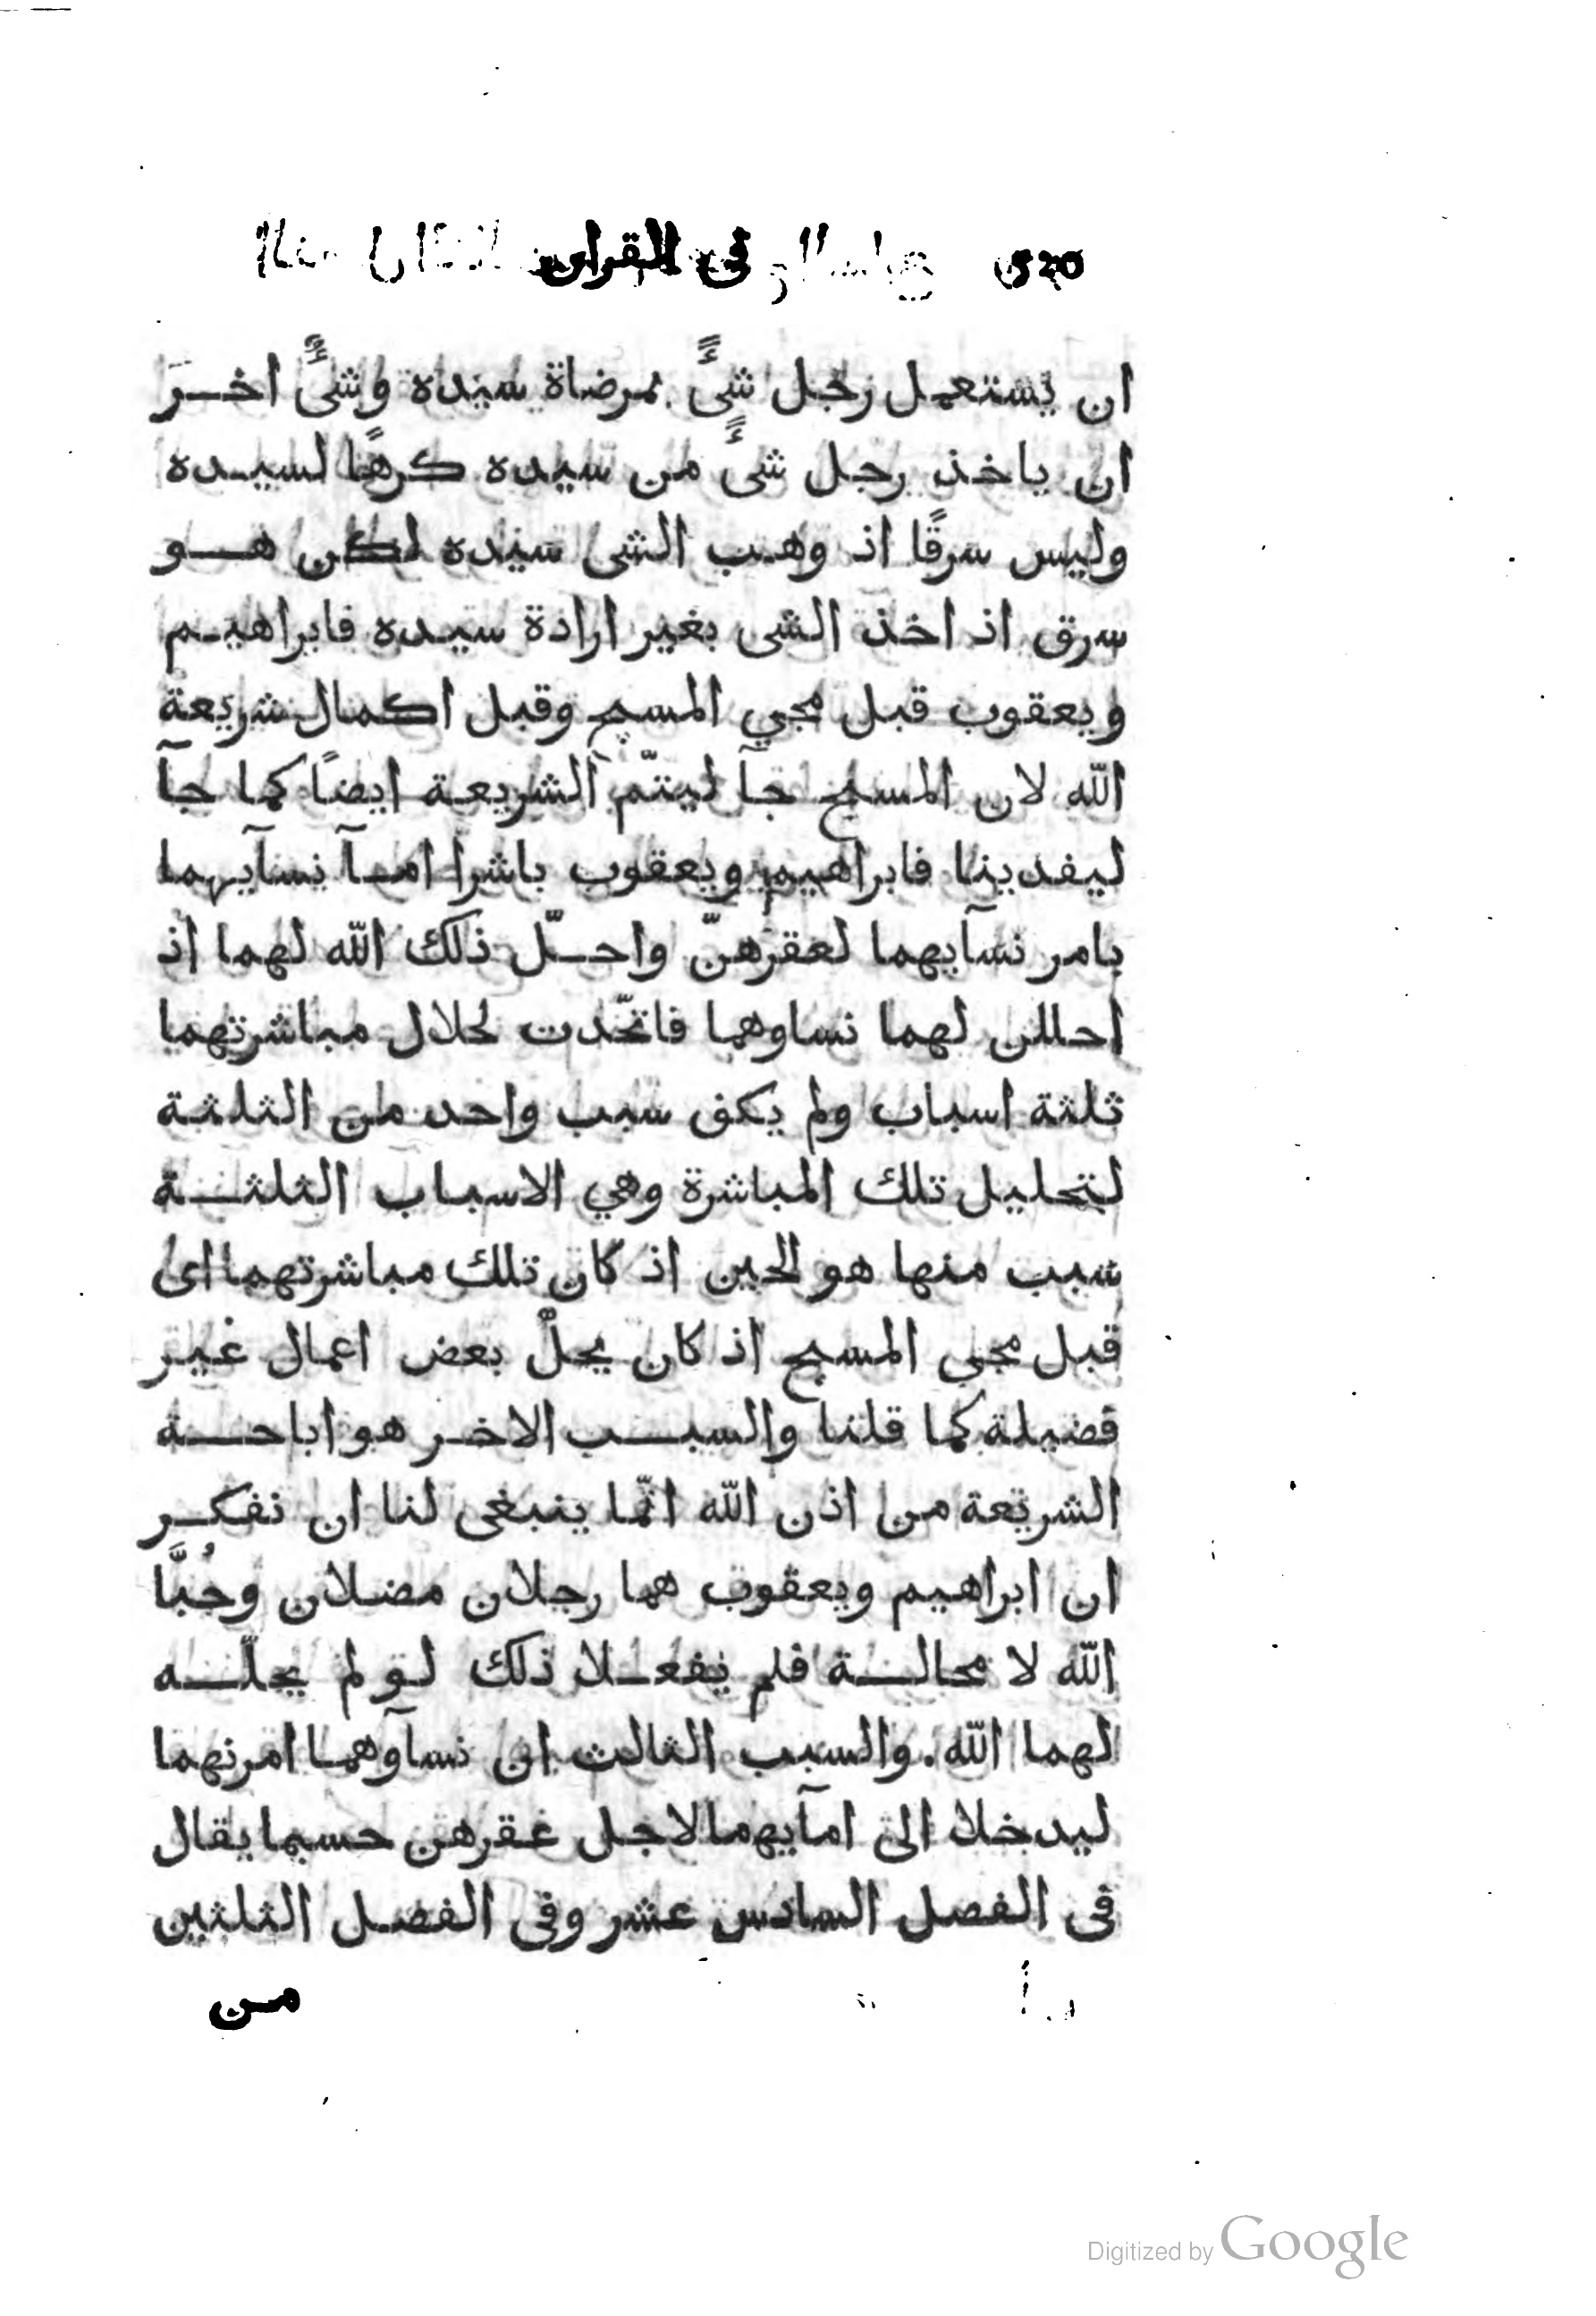 520 في القران
ان يستعمل رجل شئًّ بمرضاة سيده وشئًّ اخر
ان ياخذ رجل شئًّ من سيده كرهًا لسيده
وليس سرقًا اذ وهب الشى سيده لكن هو
سرق اذ اخذ الشى بغير ارادة سيده فابراهيم
ويعقوب قبل مجي المسيح وقبل اكمال شريعة
اللّه لان المسيح جآ ليتمّ الشريعة ايضًا كما جآ
ليفدينا فابراهيم ويعقوب باشرا امآ نسآيهما
بامر نسآيهما لعقرهنّ واحلّ ذلك اللّه لهما اذ
احللن لهما نساوهما فاتّحدت لحلال مباشرتهما
ثلثة اسباب ولم يكف سبب واحد من الثلثة
لتحليل تلك المباشرة وهي الاسباب الثلثة
سبب منها هو الحين اذ كان تلك مباشرتهما اى
قبل مجى المسيح اذ كان يحلّ بعض اعمال غير
فضيلة كما قلنا والسبب الاخر هو اباحة
الشريعة من اذن اللّه انّما ينبغى لنا ان نفكر
ان ابراهيم ويعقوب هما رجلان مضلان وحُبَّا
اللّه لا محالة فلم يفعلا ذلك لو لم يحلّه
لهما اللّه. والسبب الثالث ان نسآوهما امرنهما
ليدخلا الى امآيهما لاجل عقرهن حسبما يقال
فى الفصل السادس عشر وفى الفصل الثلثين
من
Digitized by Google